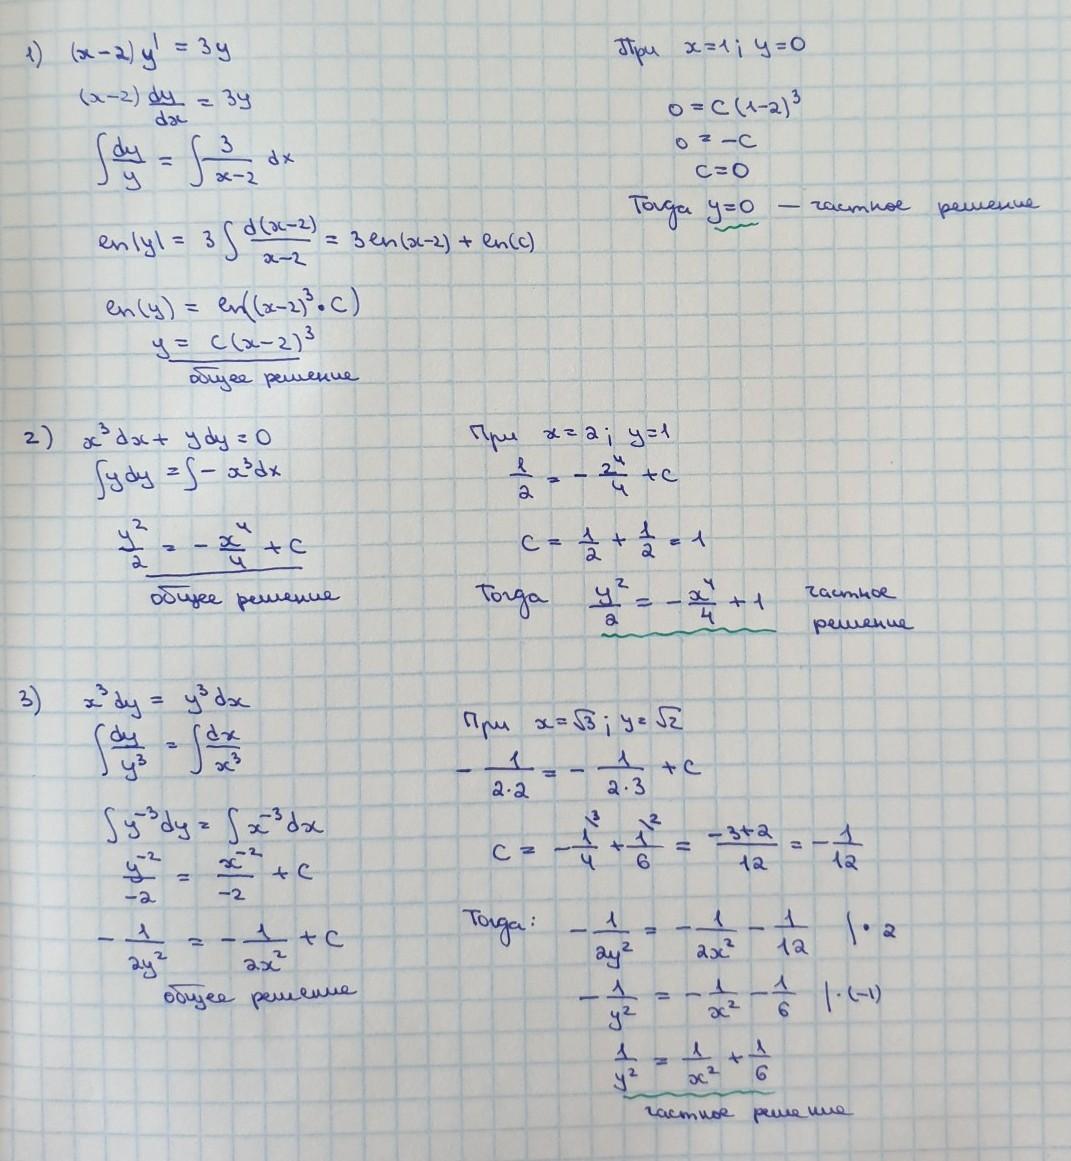 1) (x-2) y' = 3y
(x-2) dy/dx = 3y
∫ dy/y = ∫ 3/(x-2) dx
ln|y| = 3 ∫ d(x-2)/(x-2) = 3 ln(x-2) + ln(c)
ln(y) = ln((x-2)³·C)
y = C(x-2)³
общее решение
При x=1; y=0
0 = C(1-2)³
0 = -C
C=0
Тогда y=0 — частное решение
2) x³dx + ydy = 0
∫ydy = ∫-x³dx
y²/2 = -x⁴/4 + C
общее решение
При x=2; y=1
1/2 = -2⁴/4 + C
C = 1/2 + 1/2 = 1
Тогда y²/2 = -x⁴/4 + 1 частное
решение
3) x³dy = y³dx
∫ dy/y³ = ∫ dx/x³
∫y⁻³dy = ∫x⁻³dx
y⁻²/-2 = x⁻²/-2 + C
-1/2y² = -1/2x² + C
общее решение
При x=√3; y=√2
-1/2·2 = -1/2·3 + C
C = -1\3/4 + 1\2/6 = -3+2/12 = -1/12
Тогда: -1/2y² = -1/2x² - 1/12 |·2
-1/y² = -1/x² - 1/6 |·(-1)
1/y² = 1/x² + 1/6
частное решение